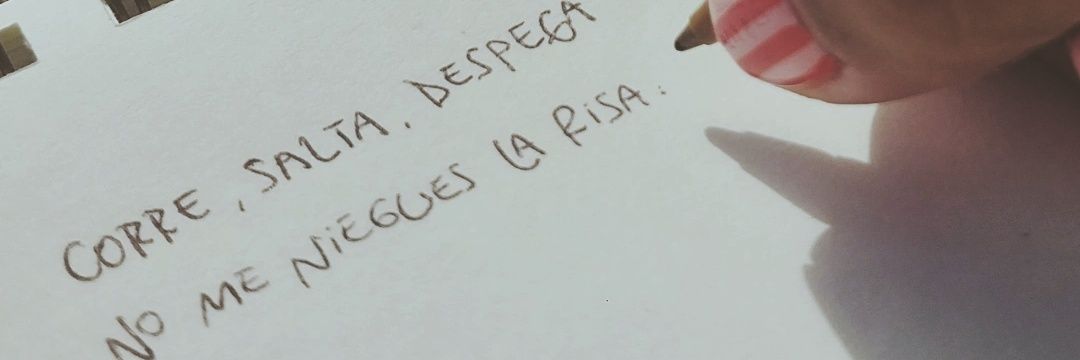 CORRE, SALTA, DESPEGA
NO ME NIEGUES LA RISA.